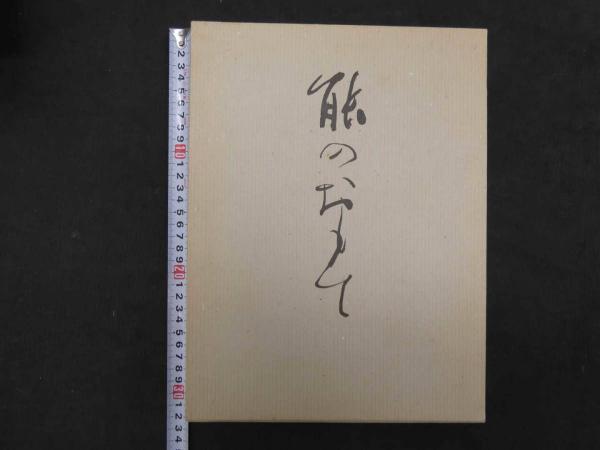 能のおもて
1 2 3 4 5 6 7 8 9 10 1 2 3 4 5 6 7 8 9 20 1 2 3 4 5 6 7 8 9 30 1 2 3 4